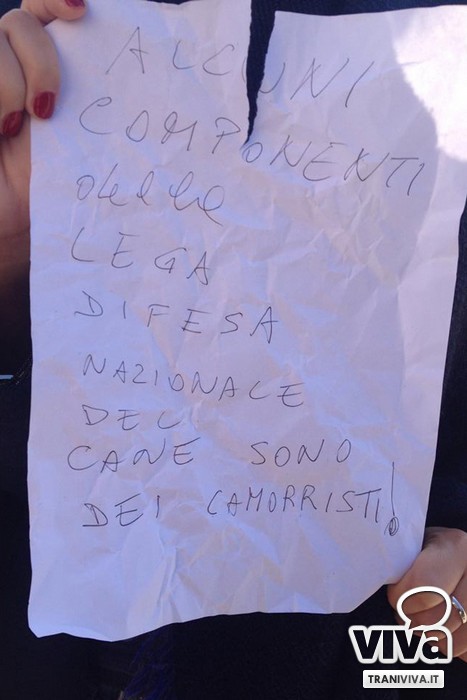 ALCUNI
COMPONENTI
delle
LEGA
DIFESA
NAZIONALE
DEL
CANE SONO
DEI CAMORRISTI!
viva
TRANIVIVA.IT